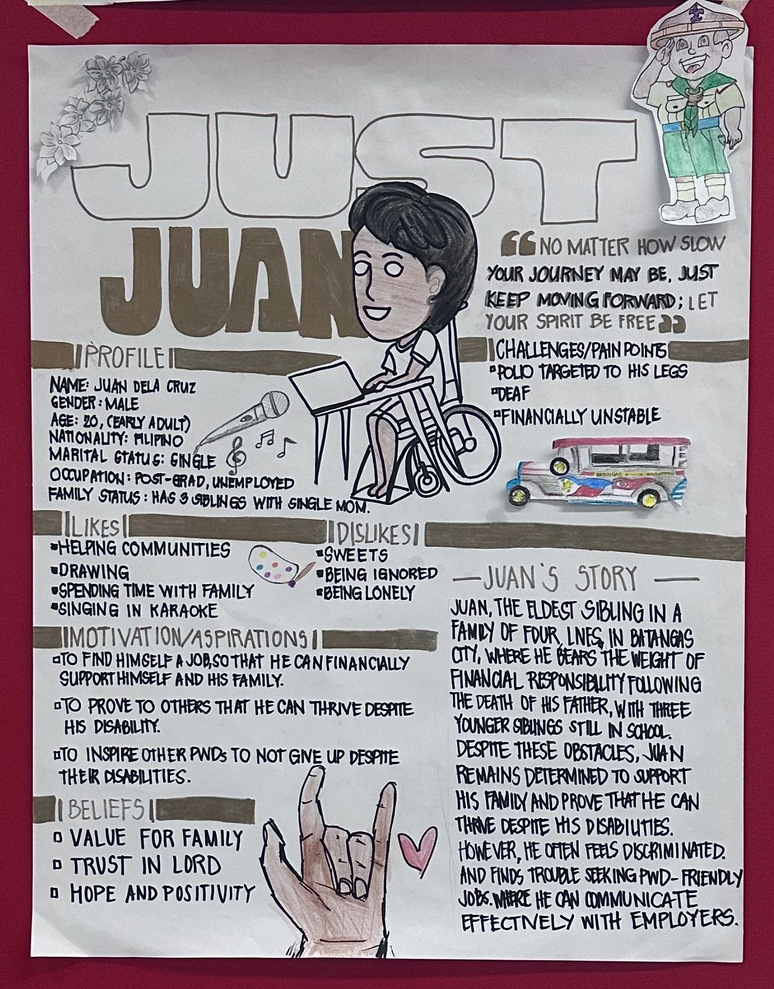 JUST
JUAN
❝NO MATTER HOW SLOW
YOUR JOURNEY MAY BE, JUST
KEEP MOVING FORWARD; LET
YOUR SPIRIT BE FREE❞
PROFILE
NAME: JUAN DELA CRUZ
GENDER: MALE
AGE: 20, (EARLY ADULT)
NATIONALITY: FILIPINO
MARITAL STATUS: SINGLE
OCCUPATION: POST-GRAD, UNEMPLOYED
FAMILY STATUS: HAS 3 SIBLINGS WITH SINGLE MOM.
CHALLENGES/PAIN POINTS
POLIO TARGETED TO HIS LEGS
DEAF
FINANCIALLY UNSTABLE
BATANGAS
LIKES
HELPING COMMUNITIES
DRAWING
SPENDING TIME WITH FAMILY
SINGING IN KARAOKE
DISLIKES
SWEETS
BEING IGNORED
BEING LONELY
MOTIVATION/ASPIRATIONS
TO FIND HIMSELF A JOB, SO THAT HE CAN FINANCIALLY
SUPPORT HIMSELF AND HIS FAMILY.
TO PROVE TO OTHERS THAT HE CAN THRIVE DESPITE
HIS DISABILITY.
TO INSPIRE OTHER PWDs TO NOT GIVE UP DESPITE
THEIR DISABILITIES.
BELIEFS
VALUE FOR FAMILY
TRUST IN LORD
HOPE AND POSITIVITY
JUAN'S STORY
JUAN, THE ELDEST SIBLING IN A
FAMILY OF FOUR, LIVES, IN BATANGAS
CITY, WHERE HE BEARS THE WEIGHT OF
FINANCIAL RESPONSIBILITY FOLLOWING
THE DEATH OF HIS FATHER, WITH THREE
YOUNGER SIBLINGS STILL IN SCHOOL.
DESPITE THESE OBSTACLES, JUAN
REMAINS DETERMINED TO SUPPORT
HIS FAMILY AND PROVE THAT HE CAN
THRIVE DESPITE HIS DISABILITIES.
HOWEVER, HE OFTEN FEELS DISCRIMINATED.
AND FINDS TROUBLE SEEKING PWD-FRIENDLY
JOBS. WHERE HE CAN COMMUNICATE
EFFECTIVELY WITH EMPLOYERS.